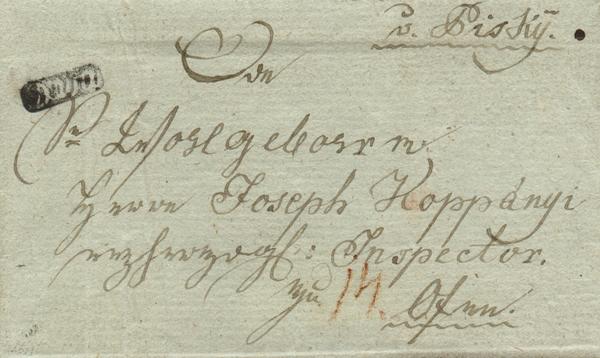 v. Pisky.
De
Sr Wohlgebohrn
Herrn Joseph Koppányi
erzherzogl: Inspector.
zu 14 Ofen.